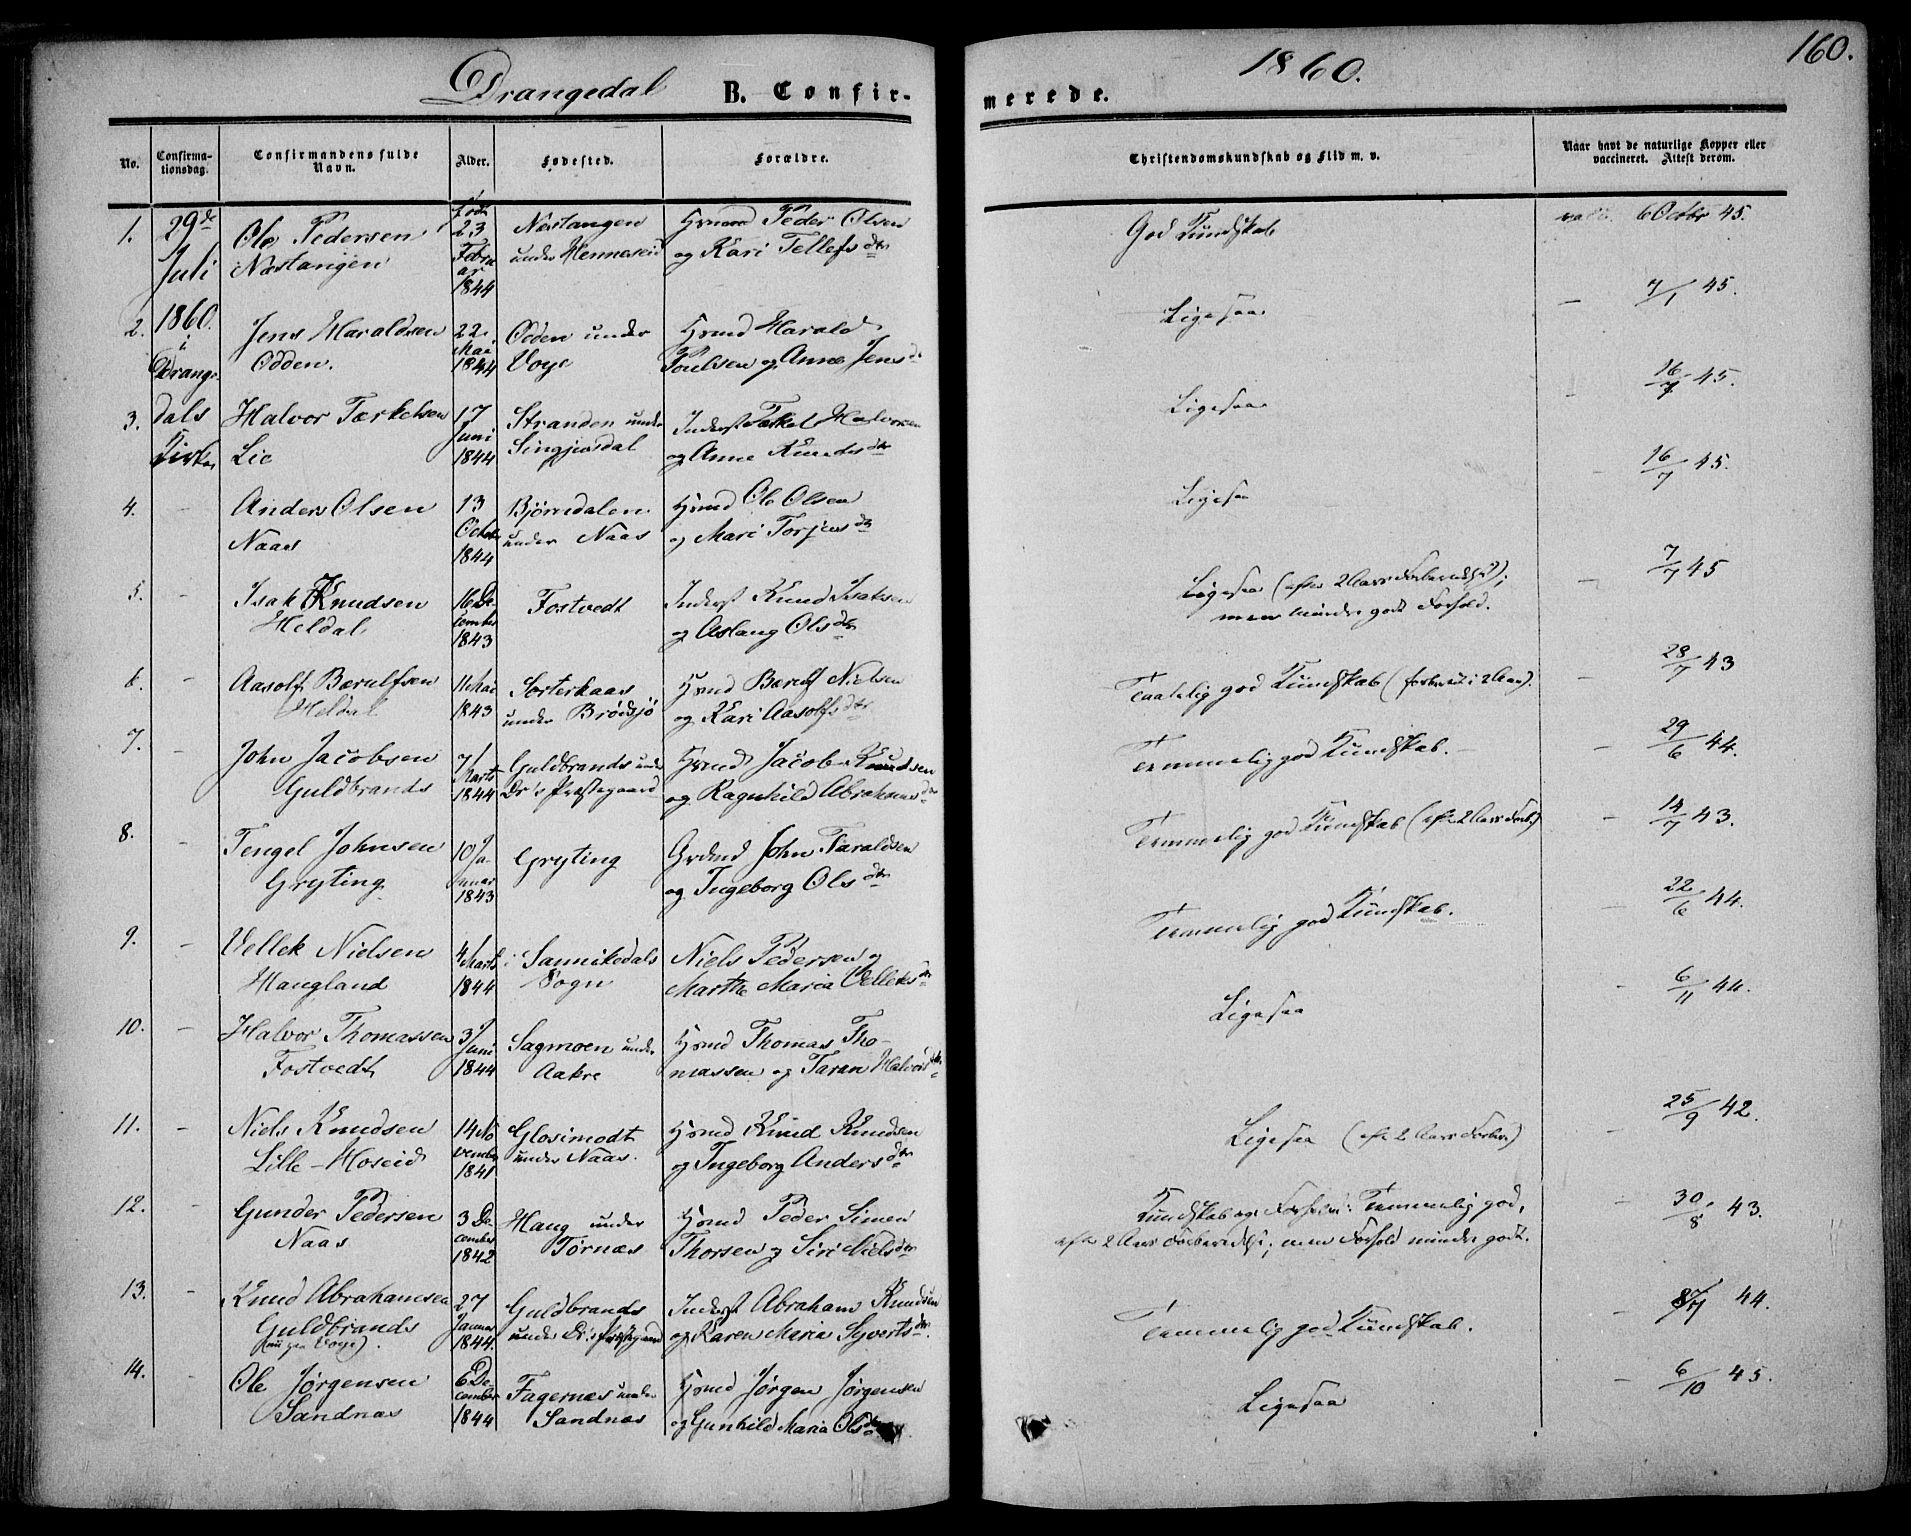 Drangedal B. Confir-
merede. 1860. 160.
No.
Confirma-
tionsdag.
Confirmandens fulde
Navn.
Alder.
Fødested.
Forældre.
Christendomskundskab og Flid m. v.
Naar havt de naturlige Kopper eller
vaccineret. Attest derom.
29de
Juli
1860.
i
Drange-
dals
Kirke
1. Ole Pedersen
Næstangen
født
23
Febru
ar
1844
Næstangen
under Henneseid
Hmd Peder Olsen
og Kari Tellefsdtr
God Kundskab
6 Octbr 45.
2. Jens Haraldsen
Odden.
22
Mai
1844
Odden under
Voje
Hmd Harald
Poulsen og Anne Jensd
Ligesaa
7/1 45.
3. Halvor Tærkelsen
Lie
17
Juni
1844
Stranden under
Inderst Tærkel Halvorsen
og Anne Knudsdtr
Ligesaa
16/7 45.
4. Anders Olsen
Naas
13
Octob
1844
Bjørndalen
under Naas
Hmd Ole Olsen
og Mari Torjusdtr
Ligesaa
16/7 45.
5. Isak Knudsen
Heldal
16 De-
cember
1843
Fostvedt
Inderst Knud Isaksen
og Aslaug Olsdtr
Ligesaa (efter 2 Aars Forberedelse);
men mindre godt Forhold.
7/7 45
6. Aasolf Bærulfsen
Heldal
11 Mai
1843
Sorterhaas
under Brødsjø
Hmd Bærulf Nielsen
og Kari Aasolfsdtr
Taalelig god Kundskab (forberedt i 2 Aar).
28/7 43
7. John Jacobsen
Guldbrands
7
Marts
1844
Guldbrands under
Dr's Præstegaard
Hmd Jacob Knudsen
og Ragnhild Abrahamsdtr
Temmelig god Kundskab.
29/6 44.
8. Tengel Johnsen
Gryting
10 Ja-
nuar
1843
Gryting
Grdmd John Taraldsen
og Ingeborg Olsdtr
Temmelig god Kundskab (efter 2 Aars Forb.)
14/7 43.
9. Vellek Nielsen
Haugland
4 Marts
1844
i Sannikedals
Sogn
Niels Pedersen og
Marthe Maria Velleksdtr
Temmelig god Kundskab.
22/6 44.
10. Halvor Thomassen
Fostvedt
3
Juni
1844
Sagmoen under
Aakre
Hmd Thomas Tho-
massen og Taran Halvorsdtr
Ligesaa
6/11 44.
11. Niels Knudsen
Lille-Hoseid
14 No
vember
1841
Glosimodt
under Naas.
Hmd Knud Knudsen
og Ingeborg Andersdtr
Ligesaa (efter 2 Aars Forber.)
25/9 42.
12. Gunder Pedersen
Naas
3 De-
cember
1842
Haug under
Tørnæs
Hmd Peder Simen
Thorsen og Siri Nielsdtr
Kundskab og Forhold: Temmelig god,
efter 2 Aars Forberedelse; men Forhold mindre godt.
30/8 43.
13. Knud Abrahamsen
Guldbrands
27
Januar
1844.
Guldbrands
under Dr's Præstegaard
Inderst Abraham Knudsen
og Karen Maria Syvertsdtr.
Temmelig god Kundskab.
44.
14. Ole Jørgensen
Sandnæs
6 De-
cember
1844
Fagernæs under
Sandnæs
Hmd Jørgen Jørgensen
og Gunhild Maria Olsdtr
Ligesaa
6/10 45.